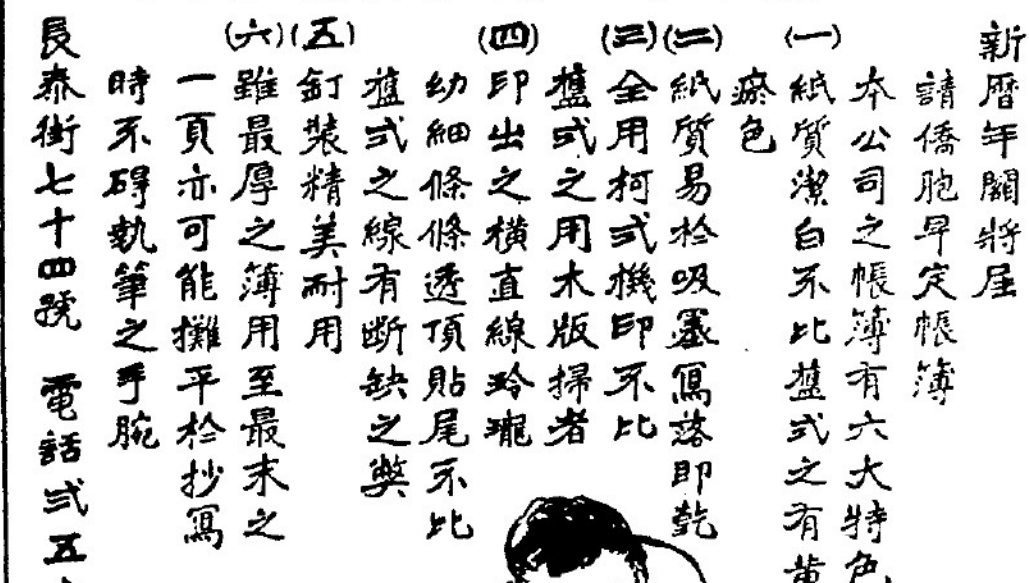 新曆年關將屆
請僑胞早定帳簿
本公司之帳簿有六大特色
(一)紙質潔白不比舊式之有黃
瘀色
(二)紙質易於吸墨寫落即乾
(三)全用柯式機印不比
舊式之用木版掃者
(四)印出之橫直線玲瓏
幼細條條透頂貼尾不比
舊式之線有斷缺之弊
(五)釘裝精美耐用
(六)雖最厚之簿用至最末之
一頁亦可能攤平於抄寫
時不碍執筆之手腕
長泰街七十四號 電話弍五